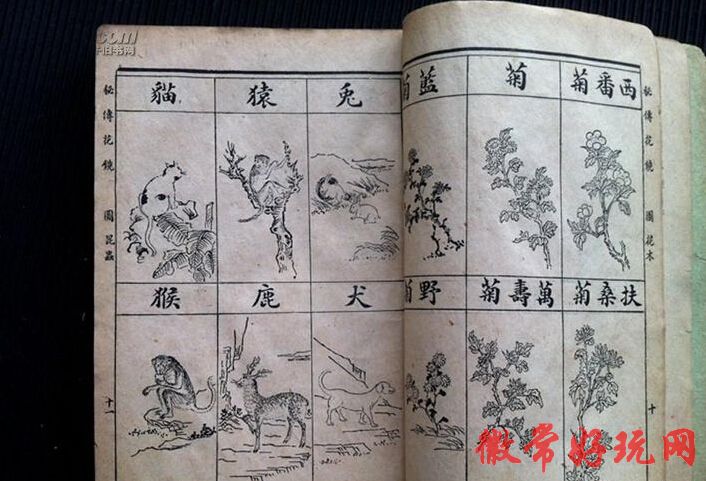 秘傳花鏡 圖花木 十
西番菊
菊
藍菊
扶桑菊
萬壽菊
野菊
兔
猿
貓
犬
鹿
猴
秘傳花鏡 圖昆蟲 十一
.com
旧书网
徽常好玩网